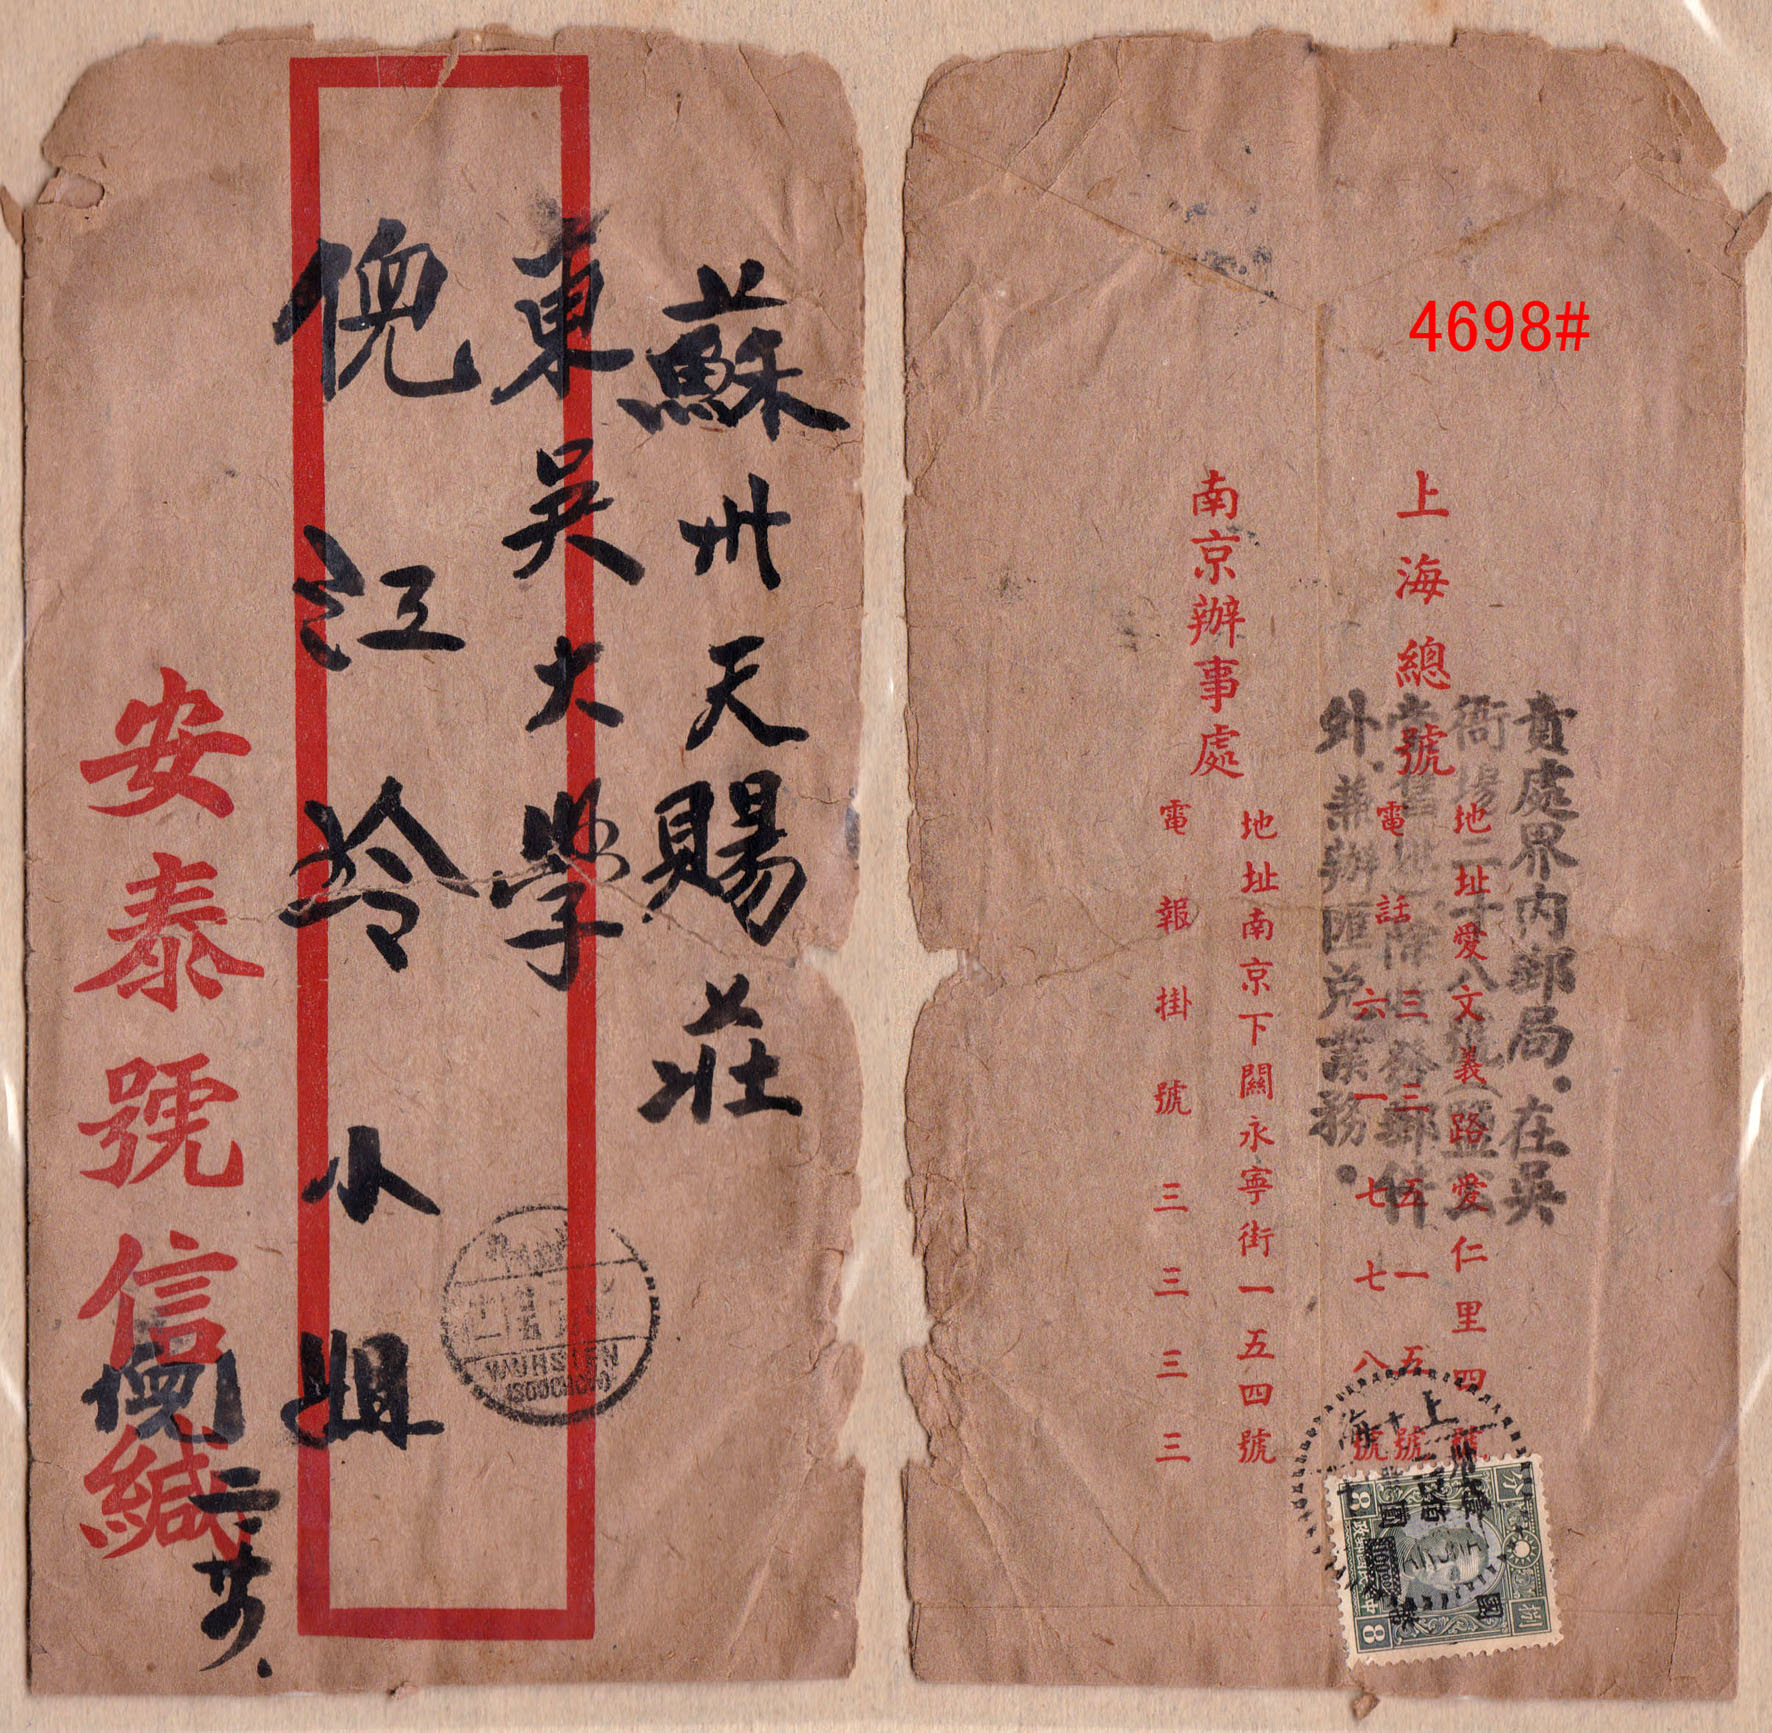 蘇州天賜莊
東吳大學
倪江泠小姐
安泰號信緘
倪
二
WUHSIEN
(SOOCHOW)
4698#
貴處界內郵局．在吳
衙場二十八號(鹽公
堂舊址)除收發郵件
外．兼辦匯兌業務．
上海總號
地址愛文義路愛仁里四號
電話
三三五一五號
六一七七八號
南京辦事處
地址南京下關永寧街一五四號
電報掛號三三三三
上海
分 捌
8
8